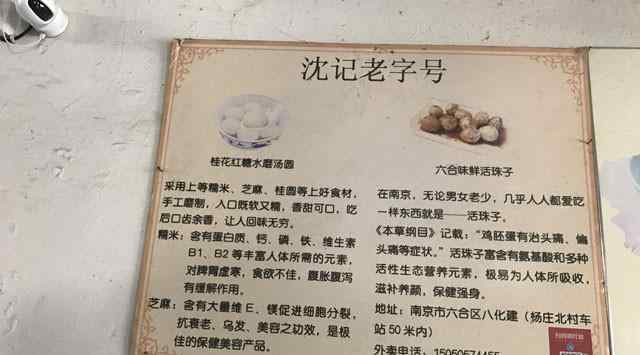 沈记老字号
桂花红糖水磨汤圆
采用上等糯米、芝麻、桂圆等上好食材，
手工磨制，入口既软又糯，香甜可口，吃
后口齿余香，让人回味无穷。
糯米：含有蛋白质、钙、磷、铁、维生素
B1、B2等丰富人体所需的元素，
对脾胃虚寒，食欲不佳，腹胀腹泻
有缓解作用。
芝麻：含有大量维E、镁促进细胞分裂，
抗衰老、乌发、美容之功效，是极
佳的保健美容产品。
六合味鲜活珠子
在南京，无论男女老少，几乎人人都爱吃
一样东西就是——活珠子。
《本草纲目》记载：“鸡胚蛋有治头痛、偏
头痛等症状。”活珠子富含有氨基酸和多种
活性生态营养元素，极易为人体所吸收，
滋补养颜，保健强身。
地址：南京市六合区八化建（扬庄北村车
站50米内）
外卖电话：